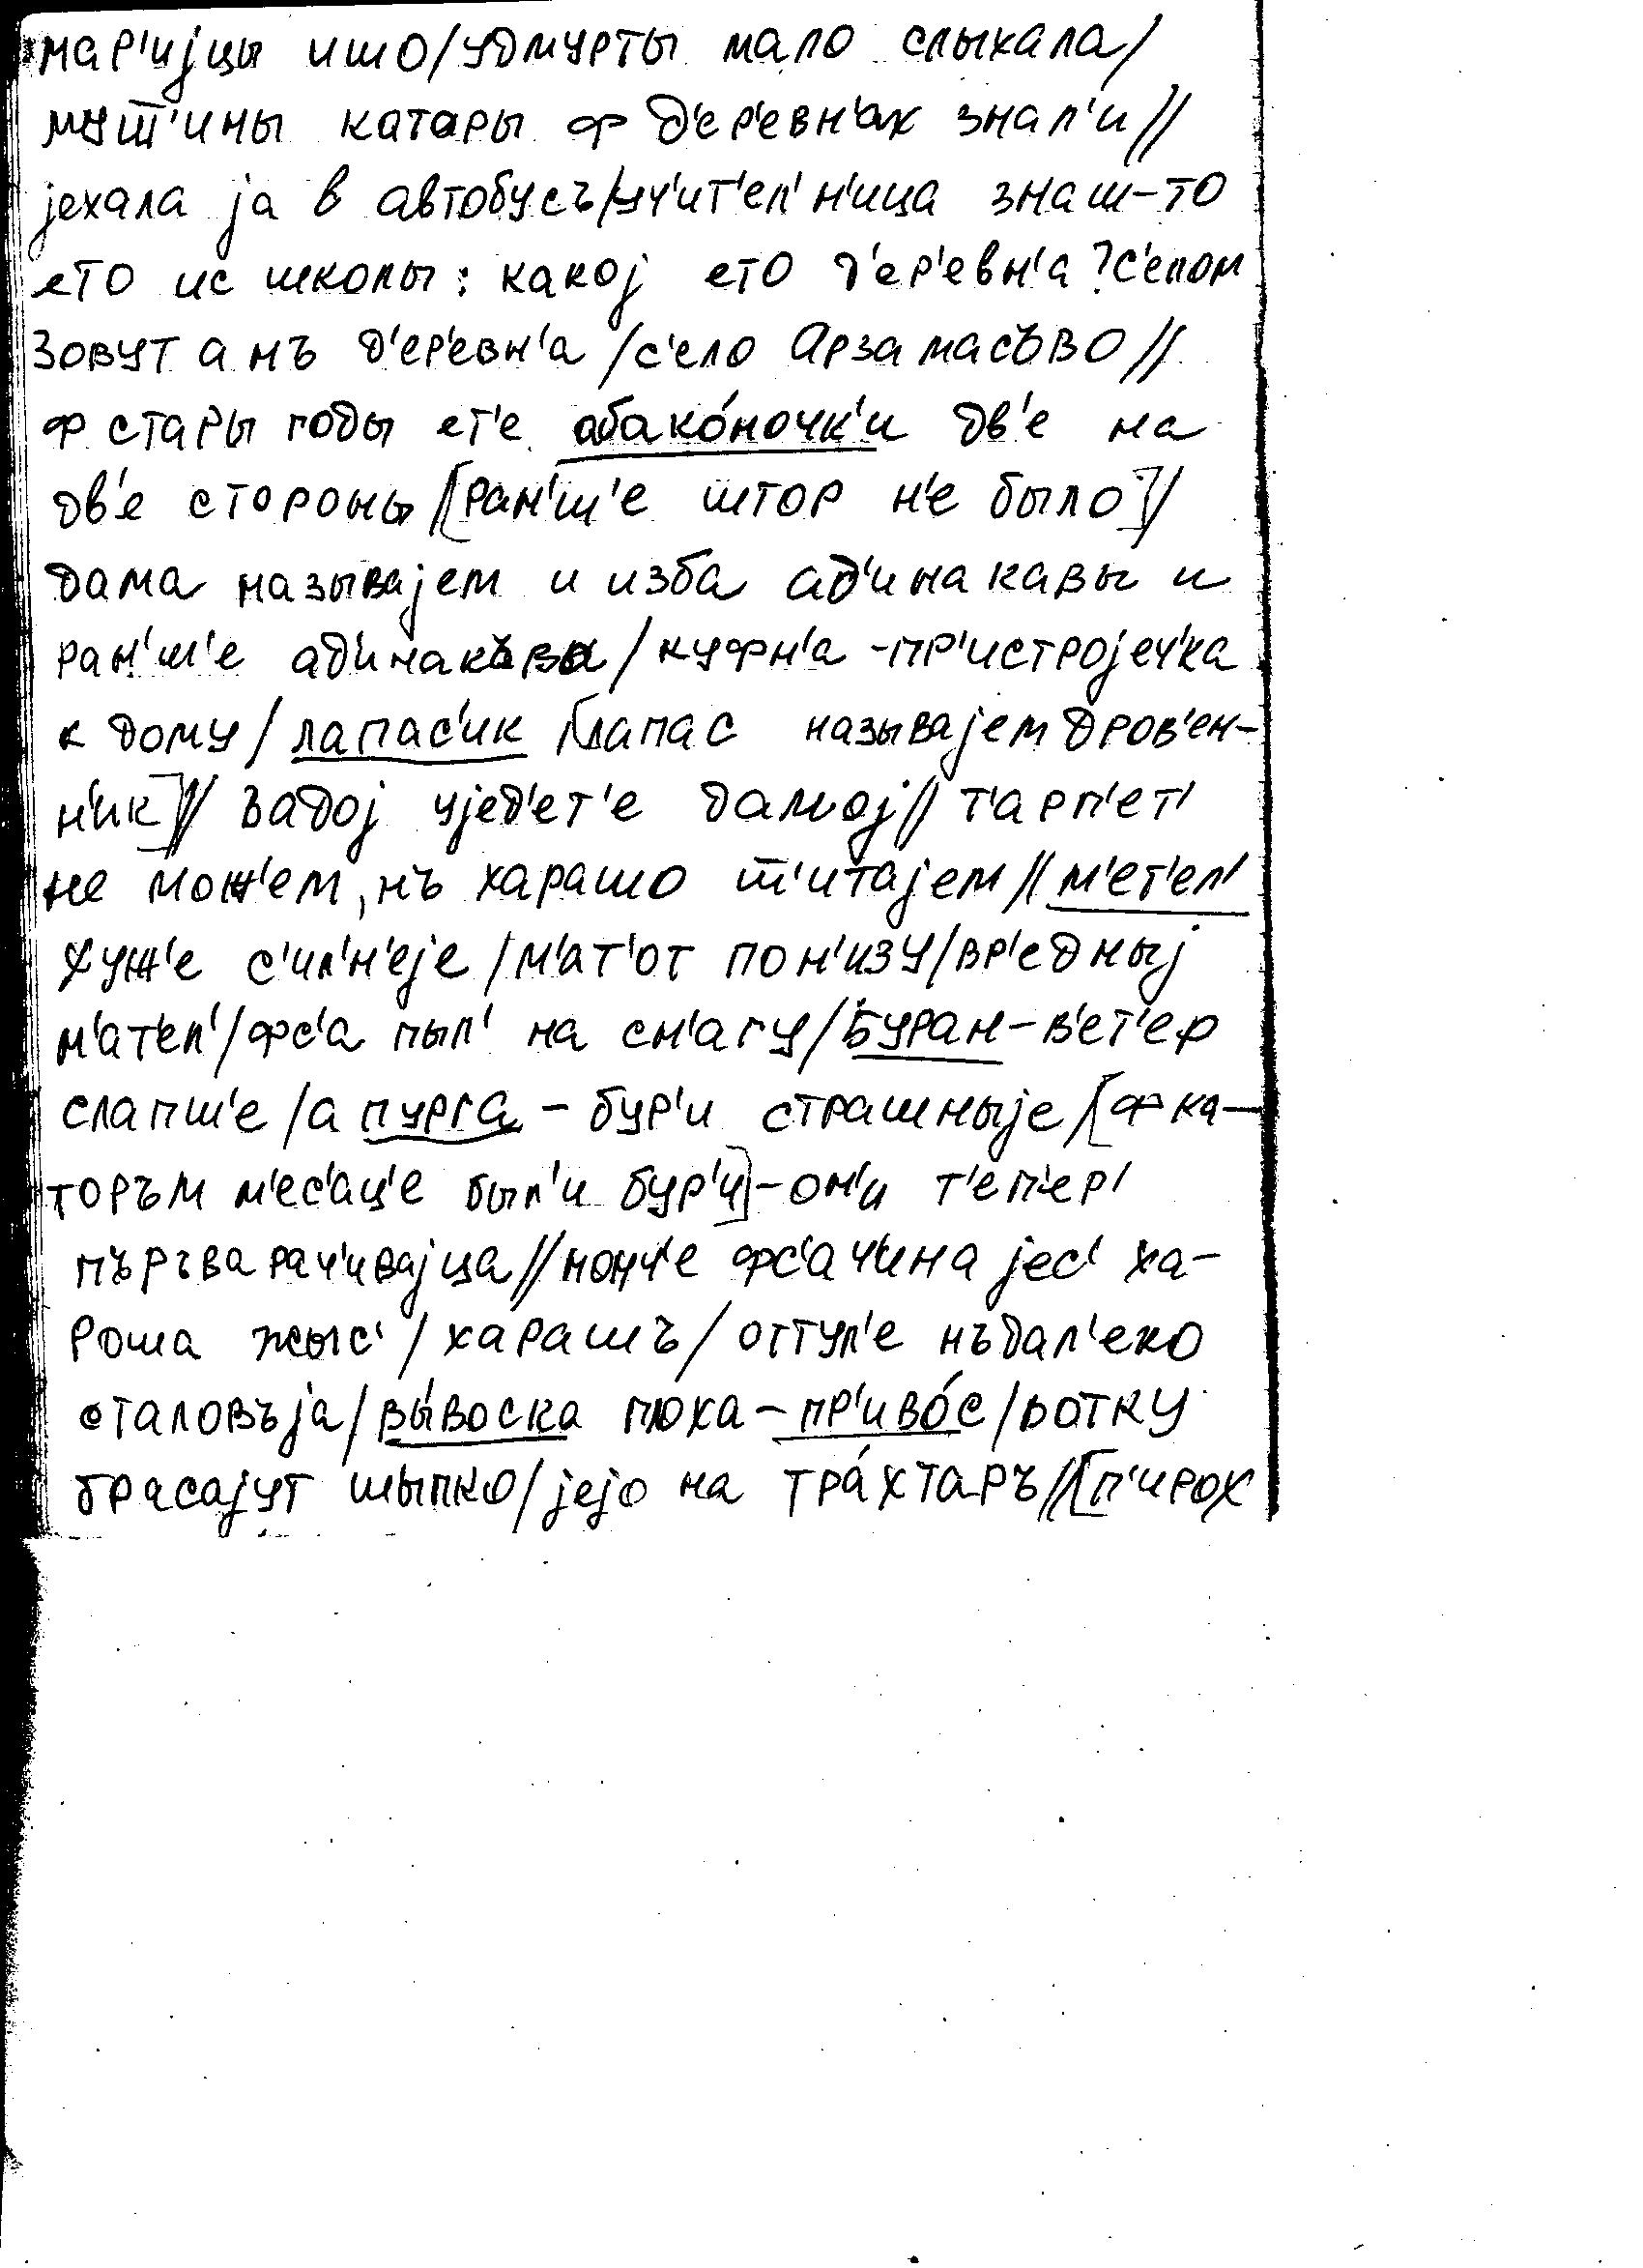 мар'иjцы ишо/удмурты мало слыхала/
муш̅'ины каторы ф д'ер'евн'ах знал'и//
jехала jа в автобусъ/уч'ит'ел'н'ица знаш-то
ето ис школы: какоj ето д'ер'евн'а? с'елом
зовут а нъ д'ер'евн'а/с'ело Арзамасъво//
ф стары годы ет'е абако́ночк'и дв'е на
дв'е стороны/[ран'ш'е штор н'е было]/
дама называjем и изба ад'инакавы и
ран'ш'е ад'инакъвы/куфн'а-пр'истроjеч'ка
к дому/лапас'ик [лапас называjем дров'ен-
н'ик]// задоj уjед'ет'е дамоj// т'арп'ет'
не мож'ем, нъ харашо ш̅'итаjем//м'ет'ел'
хуж'е с'ил'н'еjе/м'ат'от пон'изу/вр'едныj
м'ат'ел'/фс'а пыл' на сн'агу/Буран-в'ет'ер
слапш'е/а пурга-бур'и страшныjе/[ф ка-
торъм м'ес'ац'е был'и бур'и]-он'и т'еп'ер'
пъръварач'иваjца//нонч'е фс'ач'ина jес' ха-
роша жыс'/харашъ/оттул'е нъдал'еко
сталовъjа/вы́воска плоха-пр'иво́с/вотку
брасаjут шыпко/jеjо на тра́хтаръ//[п'ирох